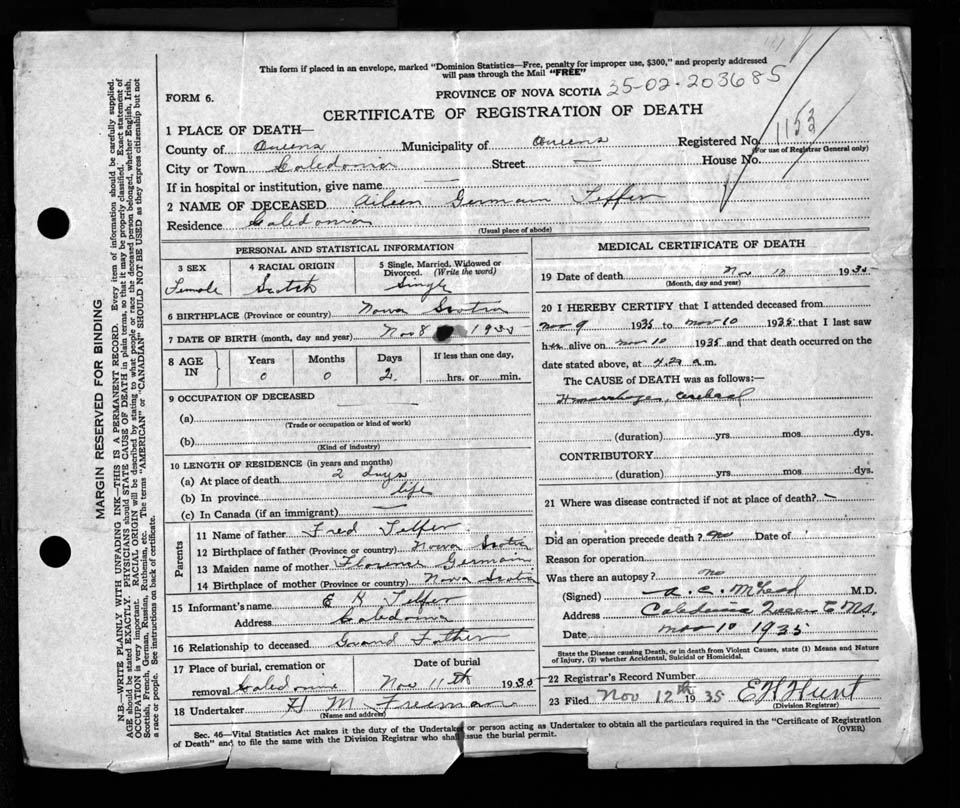 This form if placed in an envelope, marked "Dominion Statistics—Free, penalty for improper use, $300," and properly addressed
will pass through the Mail "FREE"
FORM 6.
PROVINCE OF NOVA SCOTIA 35-02-203685
CERTIFICATE OF REGISTRATION OF DEATH
1 PLACE OF DEATH—
County of Queens Municipality of Queens Registered No. 1153
(For use of Registrar General only)
City or Town Caledonia Street — House No.
If in hospital or institution, give name —
2 NAME OF DECEASED Aileen Germain Telfer
Residence Caledonia
(Usual place of abode)
PERSONAL AND STATISTICAL INFORMATION
3 SEX 4 RACIAL ORIGIN 5 Single, Married, Widowed or
Divorced. (Write the word)
Female Scotch Single
6 BIRTHPLACE (Province or country) Nova Scotia
7 DATE OF BIRTH (month, day and year) Nov 8 1935
8 AGE IN Years Months Days If less than one day,
0 0 2 hrs. or min.
9 OCCUPATION OF DECEASED —
(a)
(Trade or occupation or kind of work)
(b)
(Kind of industry)
10 LENGTH OF RESIDENCE (in years and months)
(a) At place of death 2 days
(b) In province life
(c) In Canada (if an immigrant) —
Parents
11 Name of father Fred Telfer
12 Birthplace of father (Province or country) Nova Scotia
13 Maiden name of mother Florence Germain
14 Birthplace of mother (Province or country) Nova Scotia
15 Informant's name E H Telfer
Address Caledonia
16 Relationship to deceased Grand Father
17 Place of burial, cremation or Date of burial
removal Caledonia Nov 11th 1935
18 Undertaker H M Freeman
(Name and address)
MEDICAL CERTIFICATE OF DEATH
19 Date of death Nov 10 1935
(Month, day and year)
20 I HEREBY CERTIFY that I attended deceased from
Nov 9 1935 to Nov 10 1935 that I last saw
her alive on Nov 10 1935 and that death occurred on the
date stated above, at 4.20 a.m.
The CAUSE OF DEATH was as follows:—
Hemorrhages, cerebral
(duration) yrs mos dys.
CONTRIBUTORY
(duration) yrs mos dys.
21 Where was disease contracted if not at place of death? —
Did an operation precede death? no Date of
Reason for operation
Was there an autopsy? no
(Signed) A. C. McLeod M.D.
Address Caledonia Queens Co NS.
Date Nov 10 1935
State the Disease causing Death, or in death from Violent Causes, state (1) Means and Nature
of Injury, (2) whether Accidental, Suicidal or Homicidal.
22 Registrar's Record Number
23 Filed Nov 12th 1935 E H Hunt
(Division Registrar)
Sec. 46—Vital Statistics Act makes it the duty of the Undertaker or person acting as Undertaker to obtain all the particulars required in the "Certificate of Registration
of Death" and to file the same with the Division Registrar who shall issue the burial permit.
(OVER)
MARGIN RESERVED FOR BINDING
N.B.—WRITE PLAINLY WITH UNFADING INK—THIS IS A PERMANENT RECORD. Every item of information should be carefully supplied.
AGE should be stated EXACTLY. PHYSICIANS should STATE CAUSE OF DEATH in plain terms, so that it may be properly classified. Exact statement of
OCCUPATION is very important. RACIAL ORIGIN will be described by stating to what people or race the deceased person belonged, whether English, Irish,
Scottish, French, German, Russian, Ruthenian, etc. The terms "AMERICAN" or "CANADIAN" SHOULD NOT BE USED as they express citizenship but not
a race or people. See instructions on back of certificate.